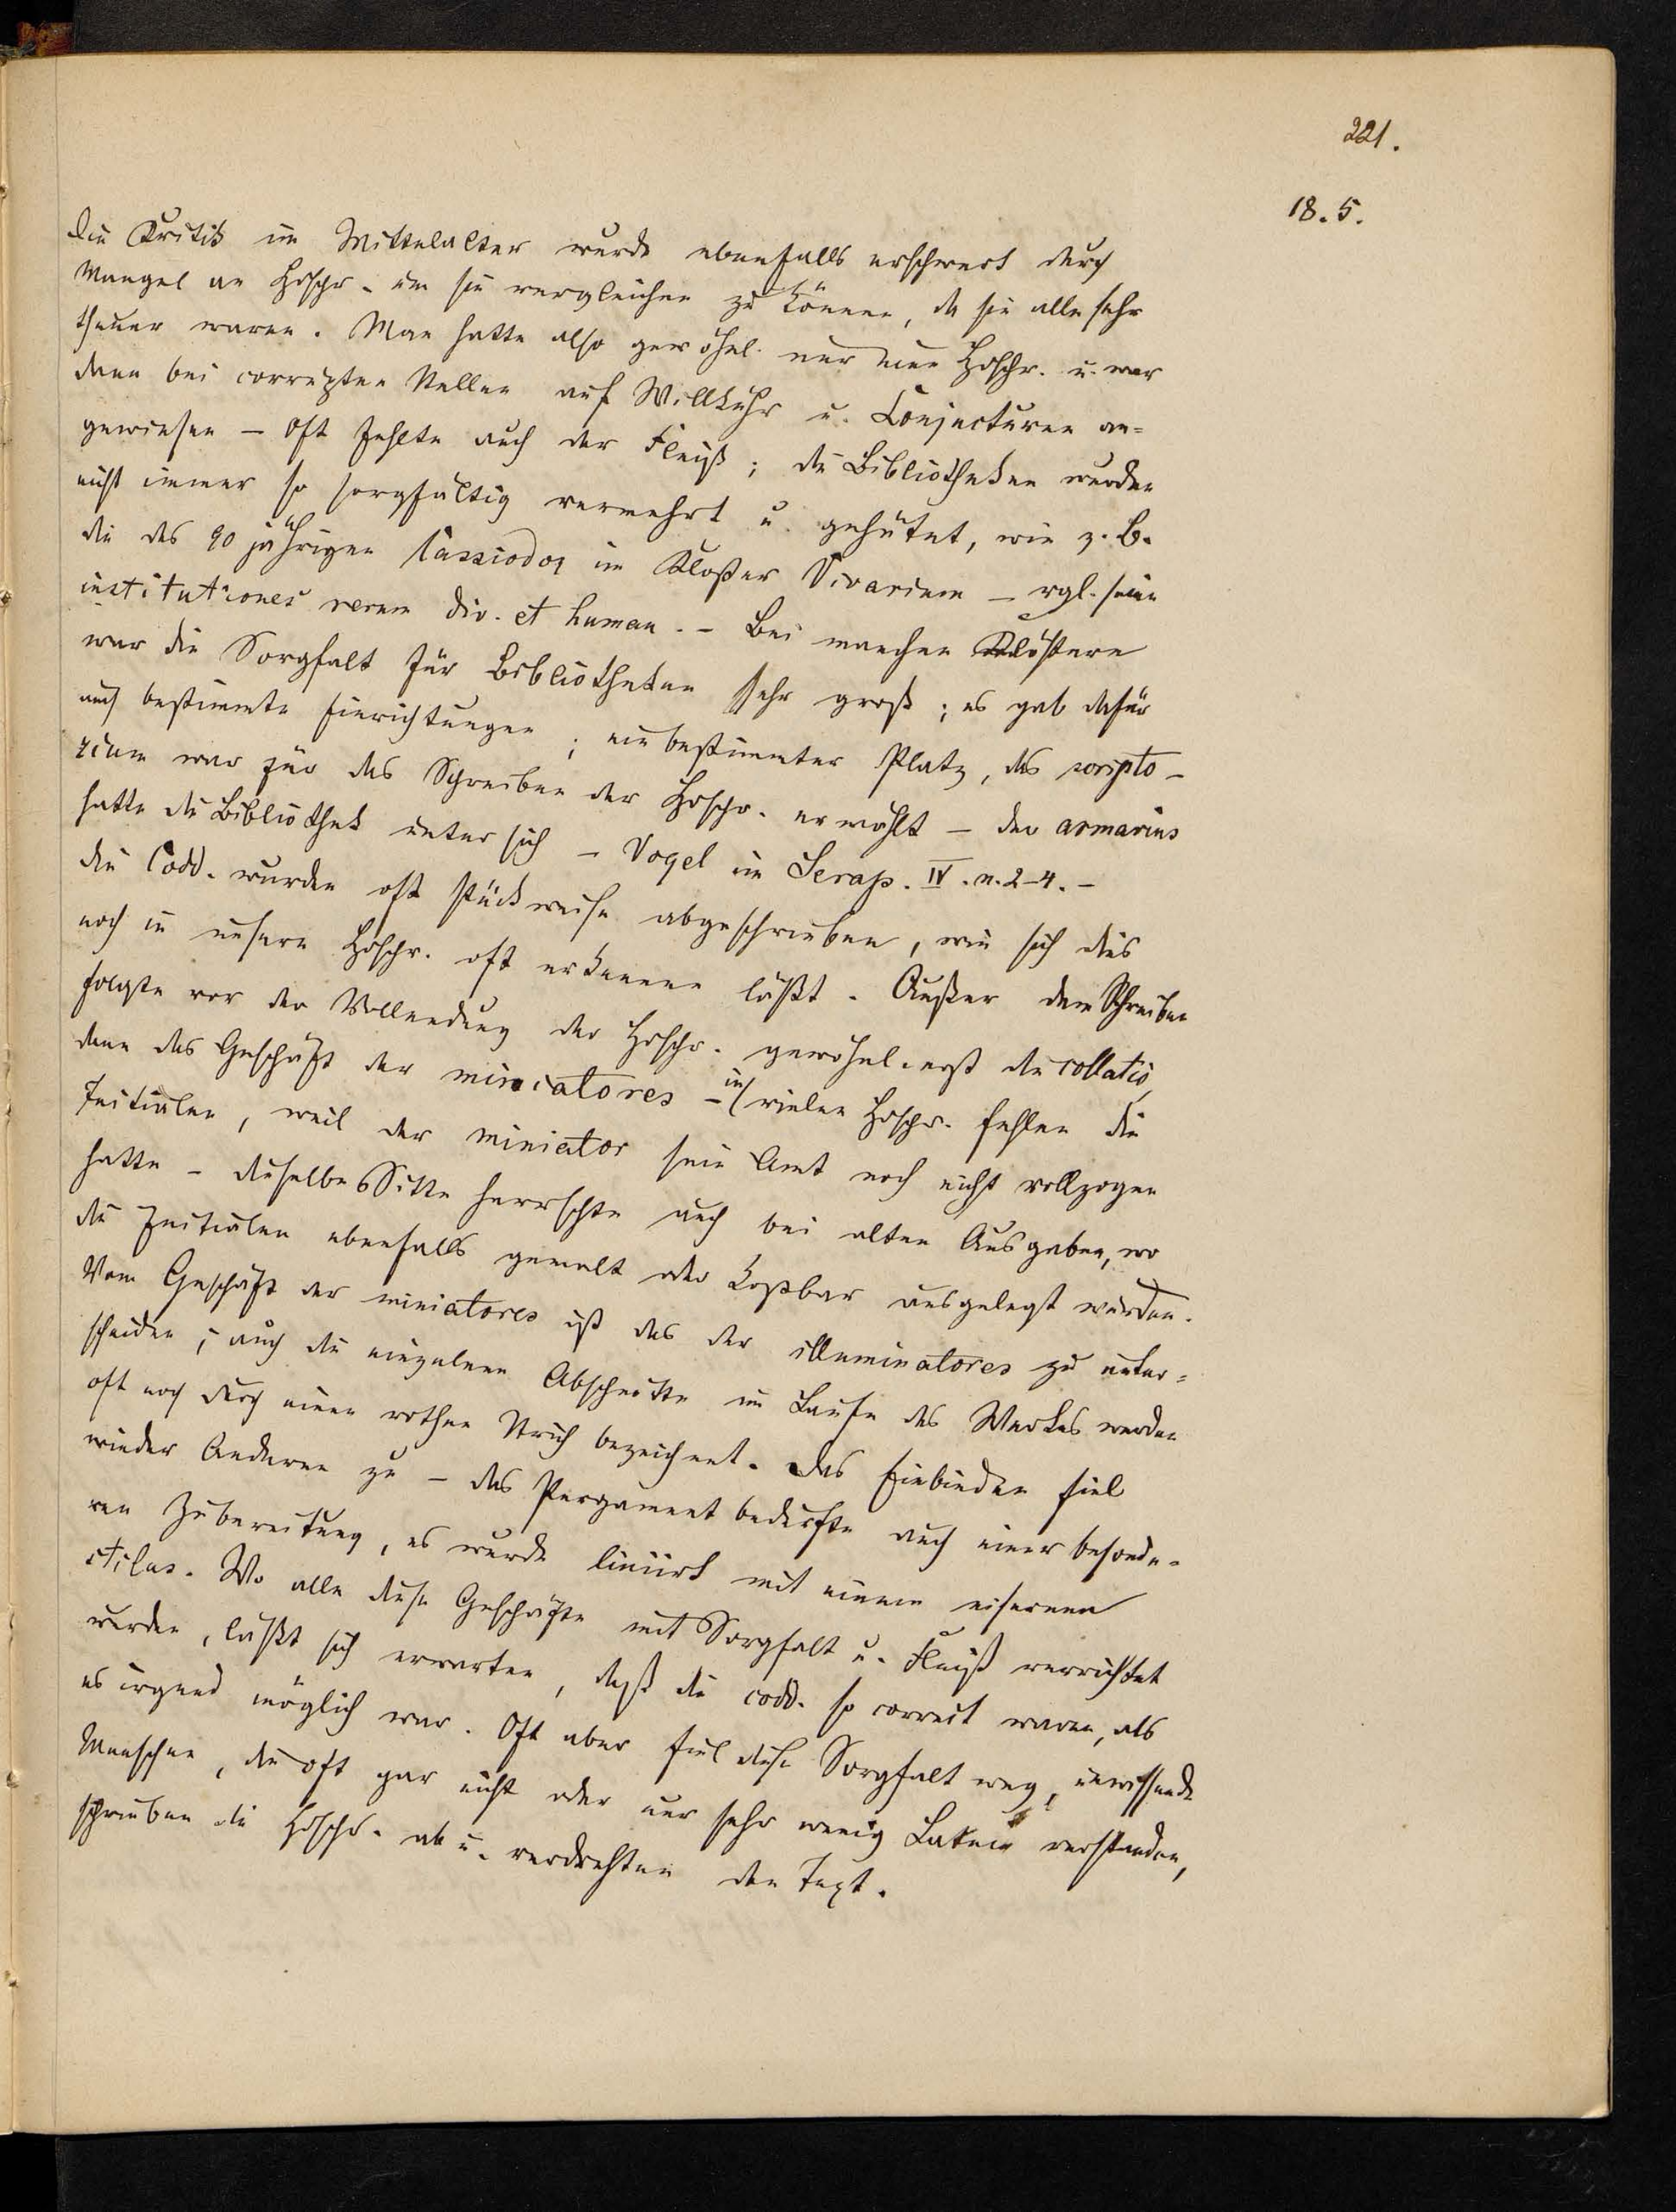 221.
18. 5.
Die Kritik im Mittelalter wurde ebenfalls erschwert durch
Mangel an Hdschr. um sie vergleichen zu können, da sie alle sehr
theuer waren. Man hatte also gewöhnl. nur eine Hdschr. u. war
dann bei corrupten Stellen auf Willkühr u. Conjecturen an=
gewiesen – Oft fehlte auch der Fleiß; die Bibliotheken wurden
nicht immer so sorgfältig vermehrt u. gehütet, wie z. B.
die des 90 jährigen Cassiodor im Kloster Vivarium – vgl. seine
institutiones rerum div. et human. – Bei manchen Klöstern
war die Sorgfalt für Bibliotheken sehr groß; es gab dafür
auch bestimmte Einrichtungen; ein bestimmter Platz, das scripto-
rium war für das Schreiben der Hdschr. erwählt – der armarius
hatte die Bibliothek unter sich – Vogel im Serap. IV. n. 2–4. –
Die Codd. wurden oft stückweise abgeschrieben, wie sich dies
noch in unsern Hdschr. oft erkennen läßt. Außer dem Schreiben
folgte vor der Vollendung der Hdschr. gewöhnl. erst die collatio,
dann das Geschäft der miniatores – in vielen Hdschr. fehlen die
Initialen, weil der miniator sein Amt noch nicht vollzogen
hatte – dieselbe Sitte herrschte auch bei alten Ausgaben, wo
die Initialen ebenfalls gemalt oder kostbar ausgelegt wurden.
Vom Geschäft der miniatores ist das der illuminatores zu unter=
scheiden; auch die einzelnen Abschnitte im Laufe des Werkes werden
oft noch durch einen rothen Strich bezeichnet. Das Einbinden fiel
wieder Anderen zu – das Pergament bedurfte auch einer besonde-
ren Zubereitung, es wurde liniirt mit einem eisernen
stilus. Wo alle diese Geschäfte mit Sorgfalt u. Fleiß verrichtet
wurden, läßt sich erwarten, daß die codd. so correct waren, als
es irgend möglich war. Oft aber fiel diese Sorgfalt weg, unwissende
Menschen, die oft gar nicht oder nur sehr wenig Latein verstanden,
schrieben die Hdschr. ab u. verdrehten den Text.